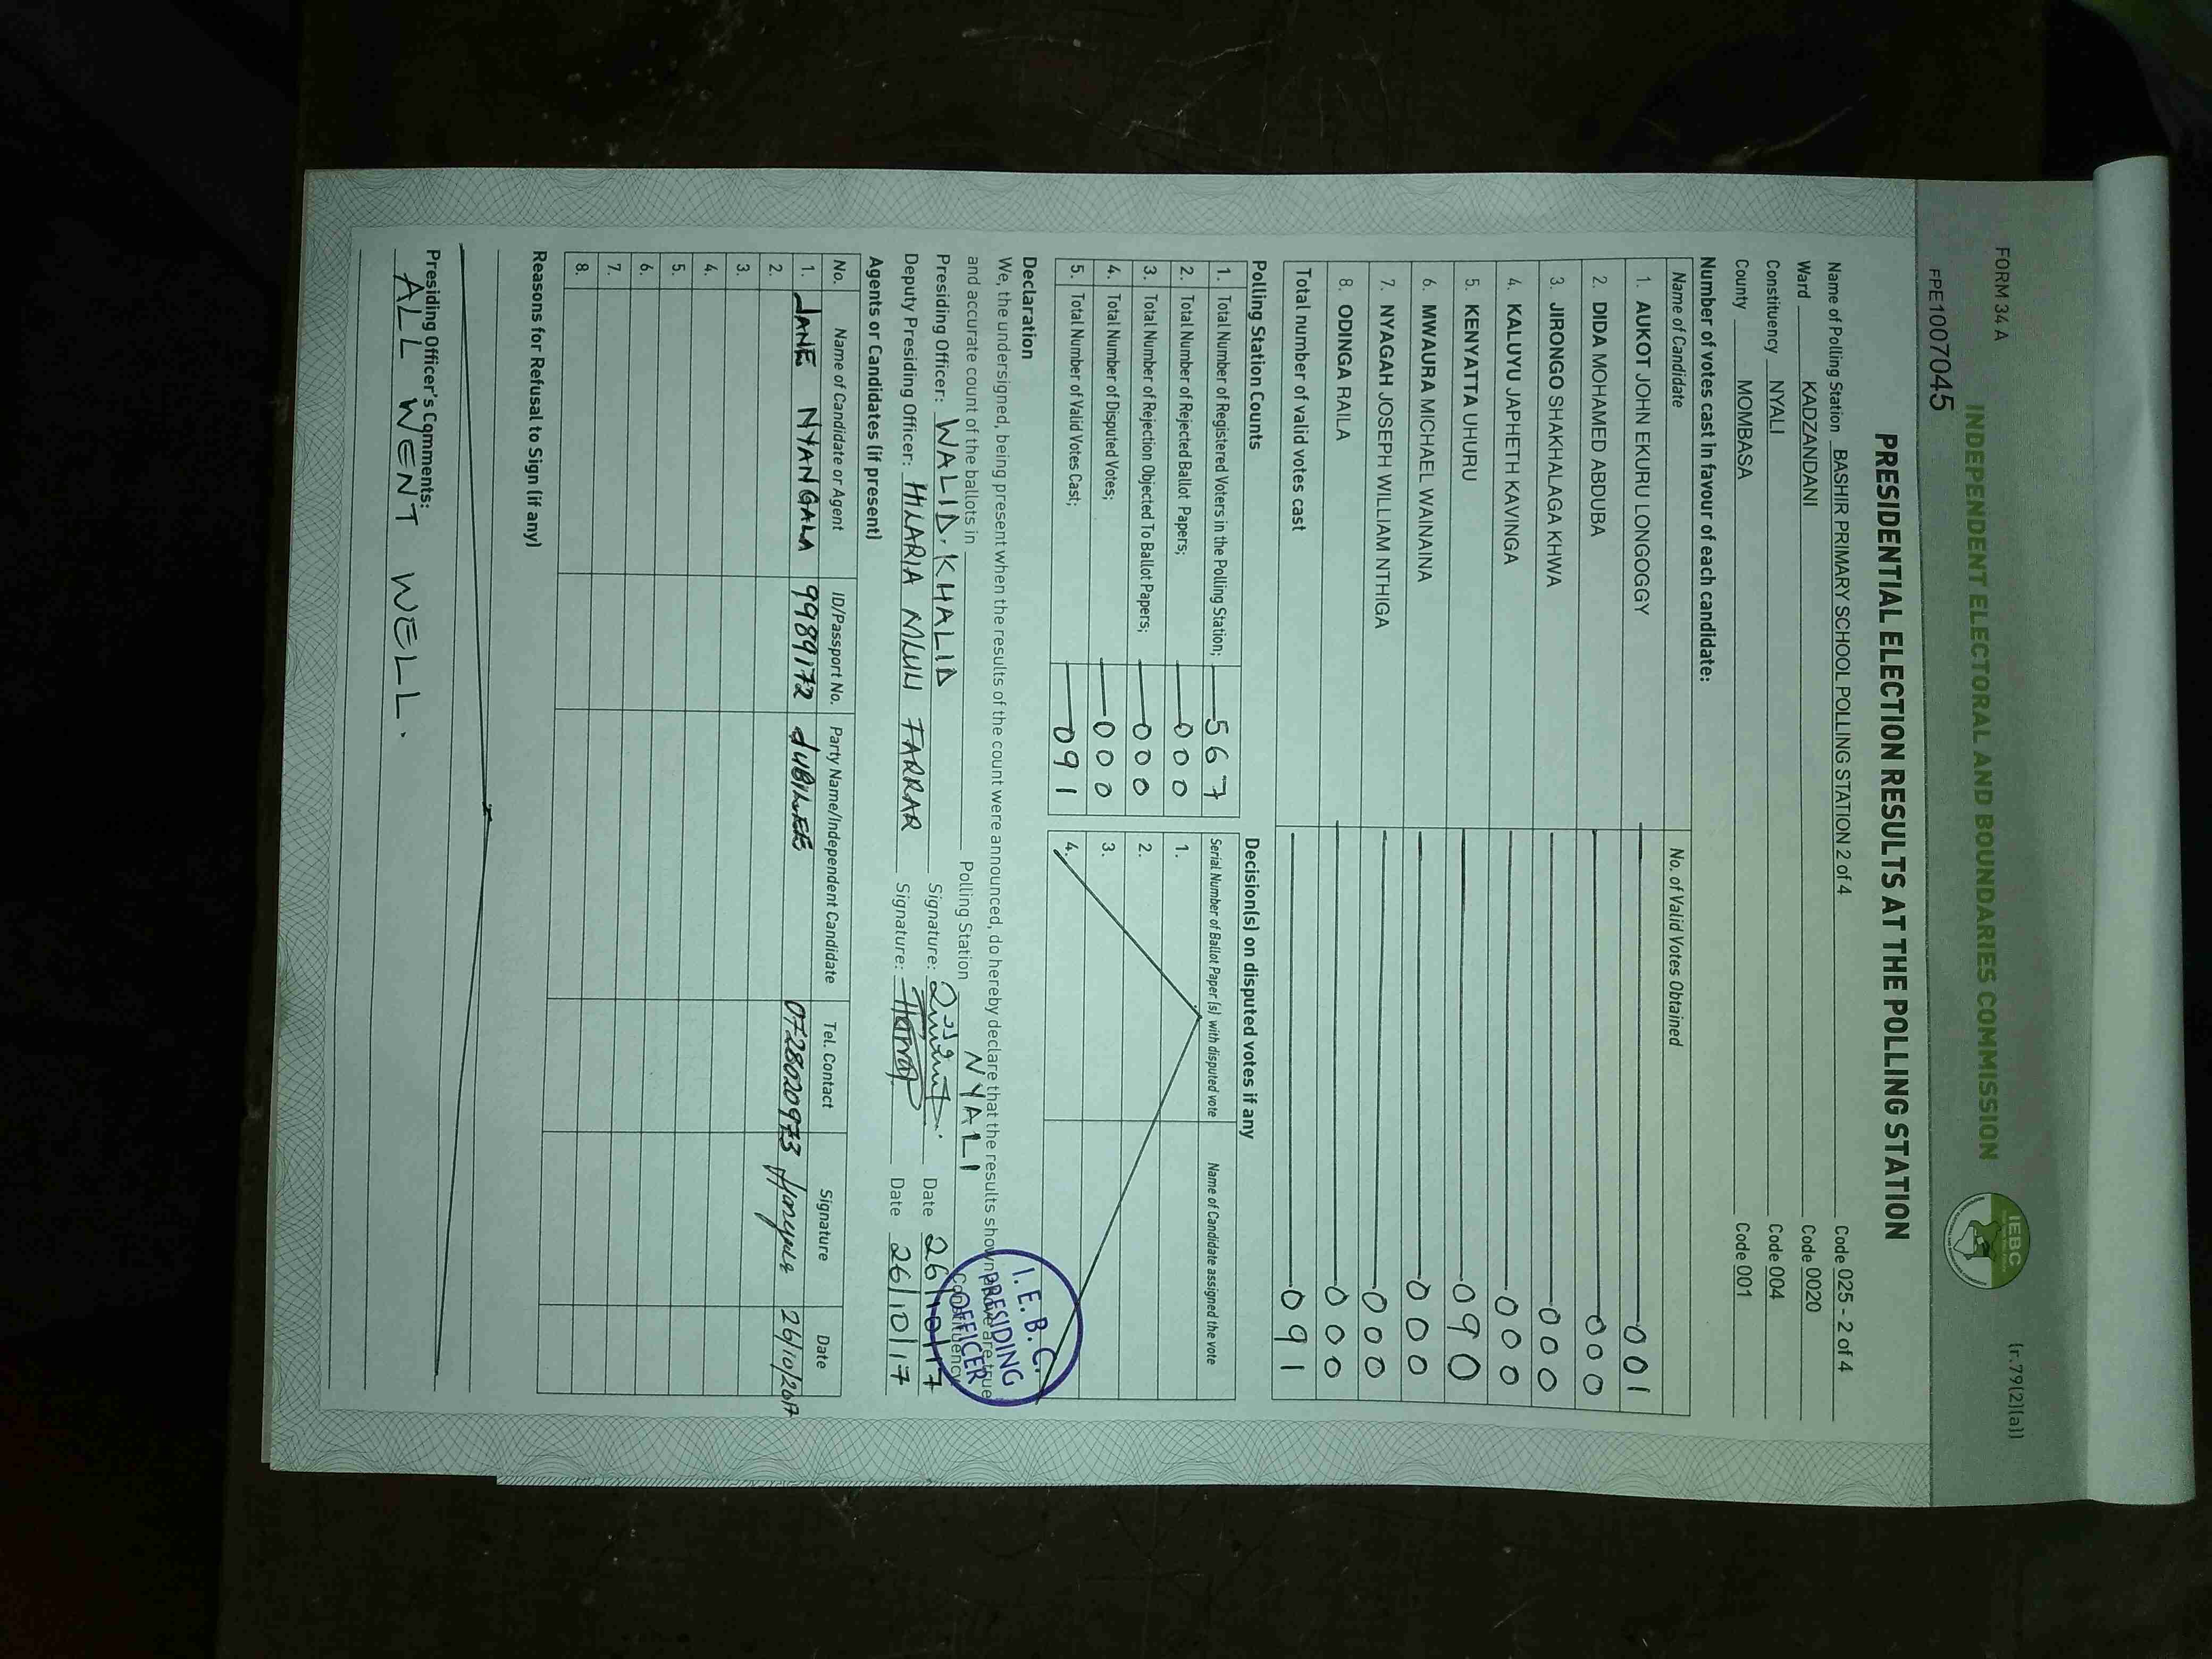 FORM 34 A
(r.79(2)(a))
INDEPENDENT ELECTORAL AND BOUNDARIES COMMISSION
IEBC
FPE1007045
PRESIDENTIAL ELECTION RESULTS AT THE POLLING STATION
Name of Polling Station BASHIR PRIMARY SCHOOL POLLING STATION 2 of 4 Code 025 - 2 of 4
Ward KADZANDANI Code 0020
Constituency NYALI Code 004
County MOMBASA Code 001
Number of votes cast in favour of each candidate:
Name of Candidate No. of Valid Votes Obtained
1. AUKOT JOHN EKURU LONGOGGY 001
2. DIDA MOHAMED ABDUBA 000
3. JIRONGO SHAKHALAGA KHWA 000
4. KALUYU JAPHETH KAVINGA 000
5. KENYATTA UHURU 090
6. MWAURA MICHAEL WAINAINA 000
7. NYAGAH JOSEPH WILLIAM NTHIGA 000
8. ODINGA RAILA 000
Total number of valid votes cast 091
Polling Station Counts
1. Total Number of Registered Voters in the Polling Station; 567
2. Total Number of Rejected Ballot Papers; 000
3. Total Number of Rejection Objected To Ballot Papers; 000
4. Total Number of Disputed Votes; 000
5. Total Number of Valid Votes Cast; 091
Decision(s) on disputed votes if any
Serial Number of Ballot Paper (s) with disputed vote Name of Candidate assigned the vote
1.
2.
3.
4.
Declaration
We, the undersigned, being present when the results of the count were announced, do hereby declare that the results shown above are true
and accurate count of the ballots in Polling Station NYALI Constituency
Presiding Officer: WALID.KHALID Signature: Date 26/10/17
Deputy Presiding Officer: HILARIA MLULI FARRAR Signature: Date 26/10/17
I.E.B.C.
PRESIDING
OFFICER
Agents or Candidates (if present)
No. Name of Candidate or Agent ID/Passport No. Party Name/Independent Candidate Tel. Contact Signature Date
1. JANE NYANGALA 9989172 JUBILEE 0728020973 26/10/2017
2.
3.
4.
5.
6.
7.
8.
Reasons for Refusal to Sign (if any)
Presiding Officer's Comments:
ALL WENT WELL.